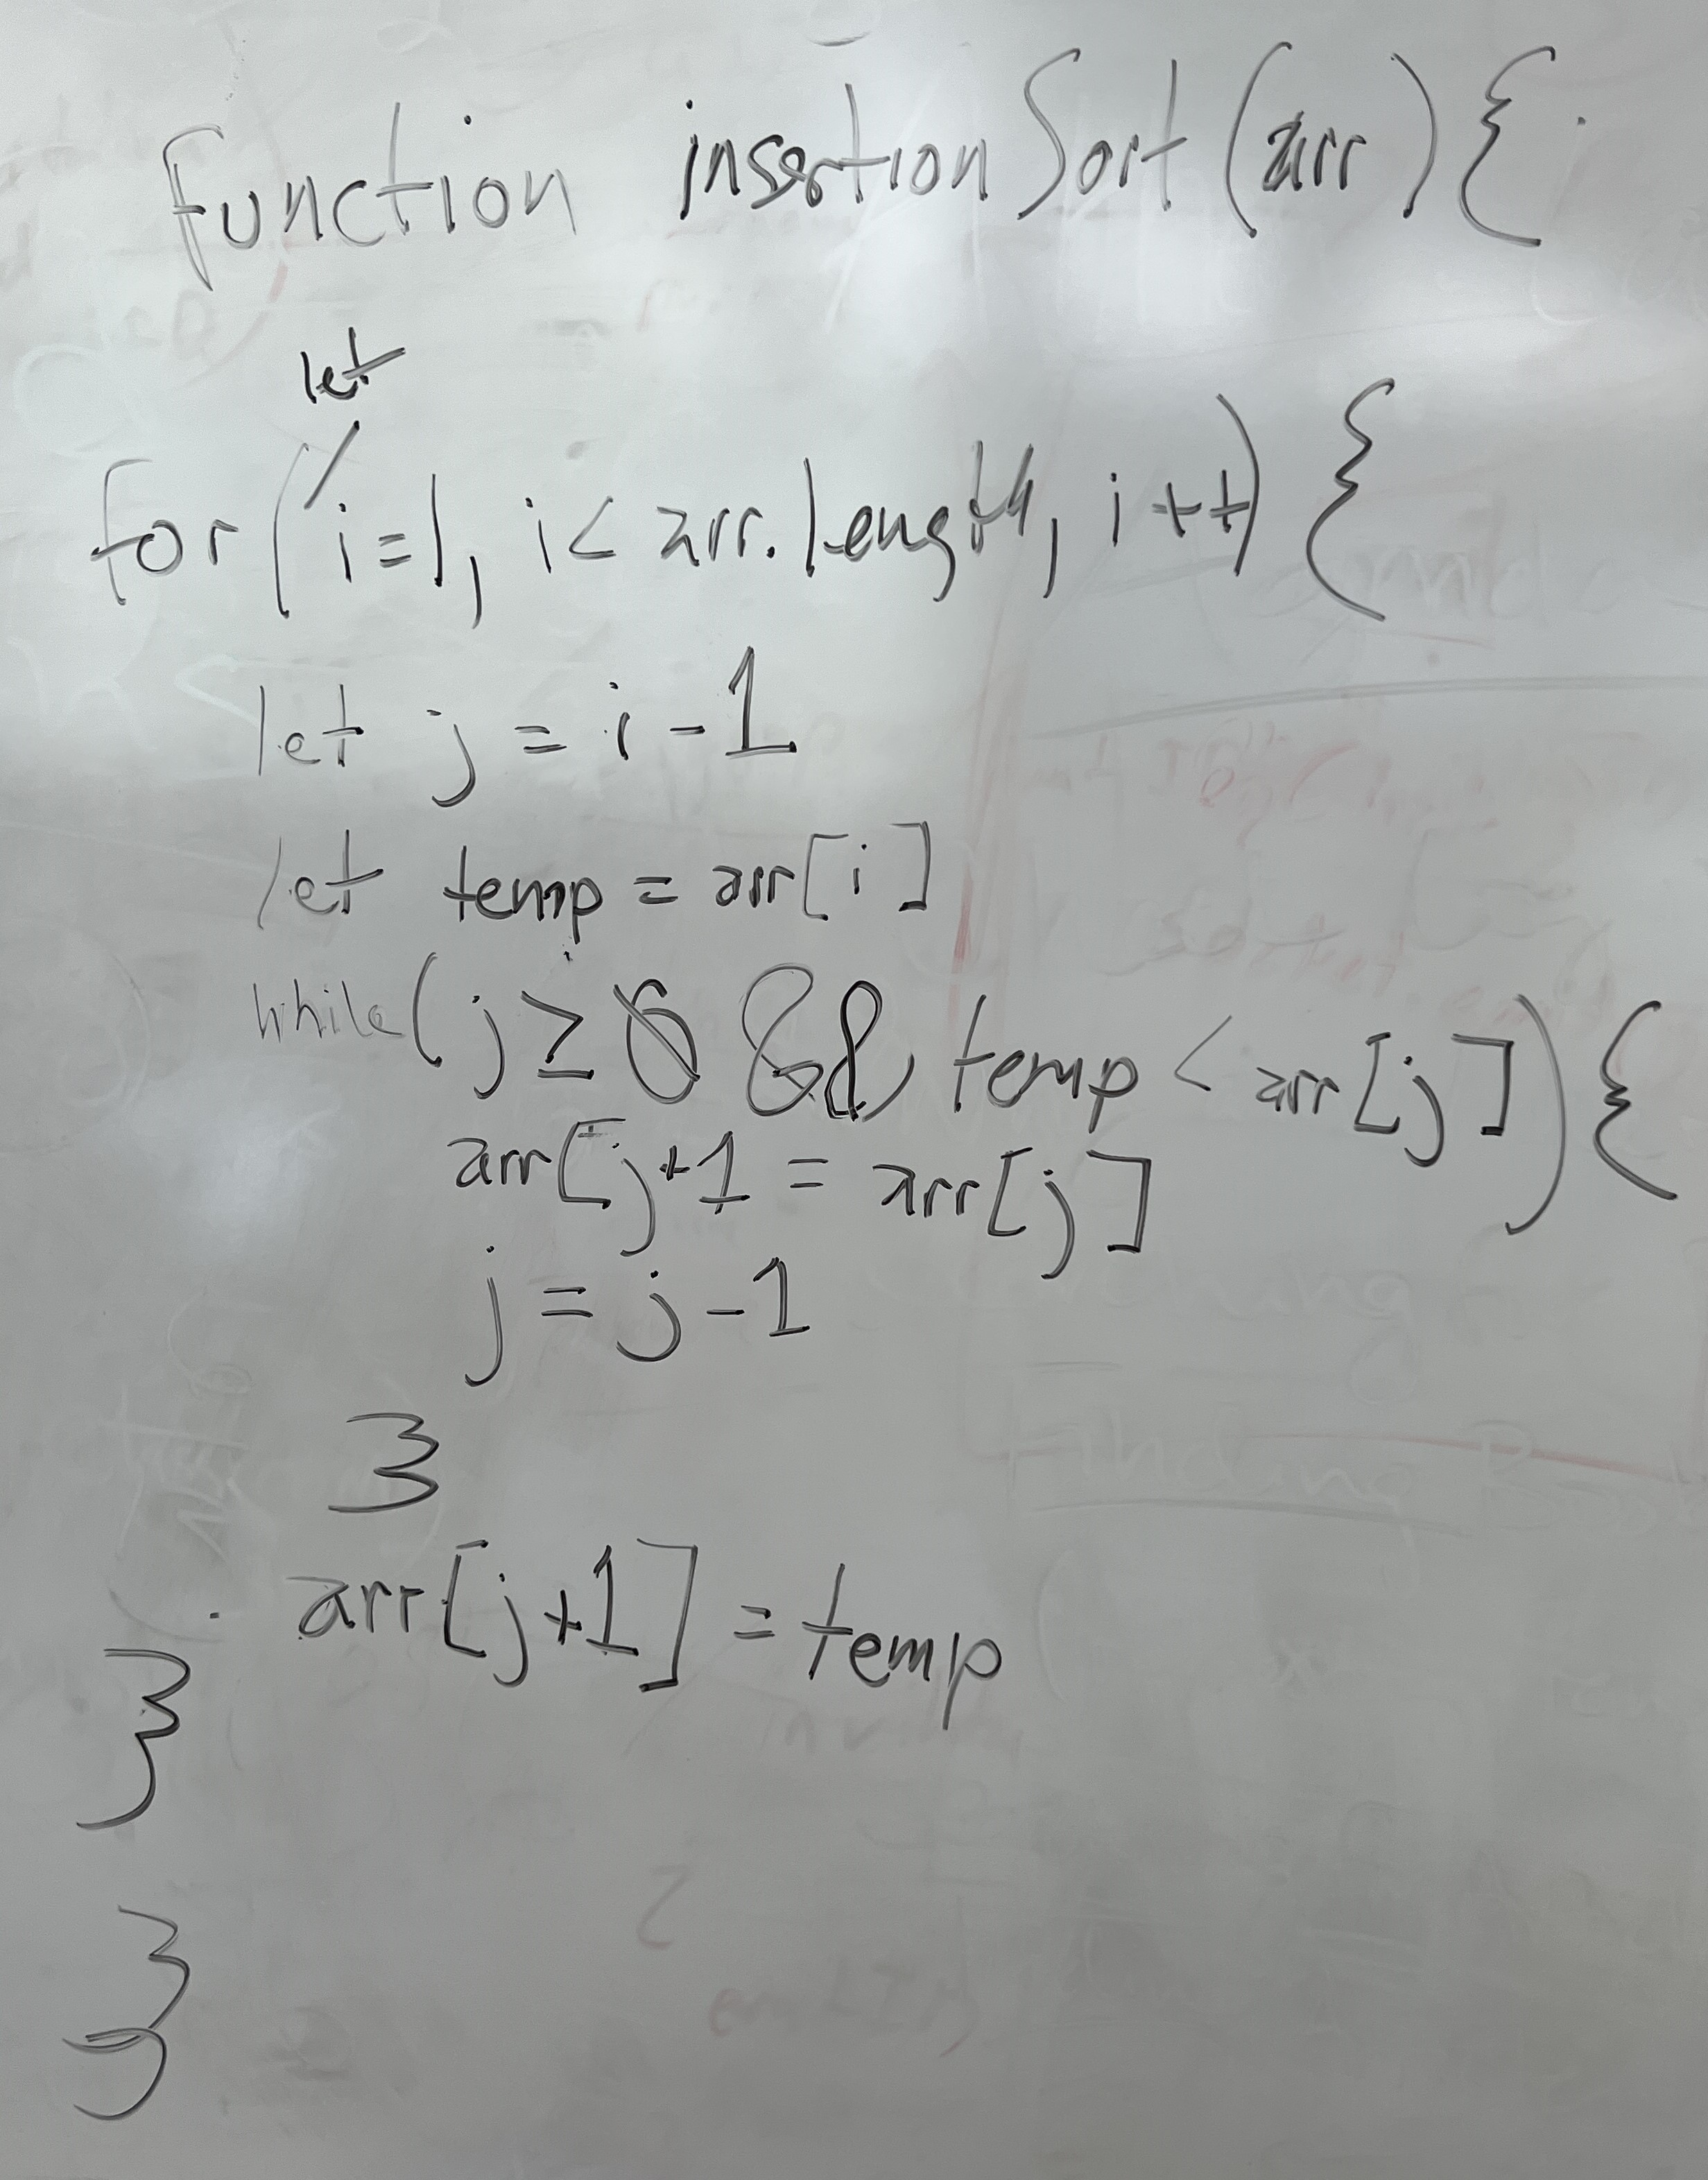 function insertionSort(arr){
let
for(i=1, i< arr.length, i++){
let j = i-1
let temp = arr[i]
while(j≥0 && temp < arr[j]){
arr[j+1 = arr[j]
j = j-1
}
arr[j+1] = temp
}
}